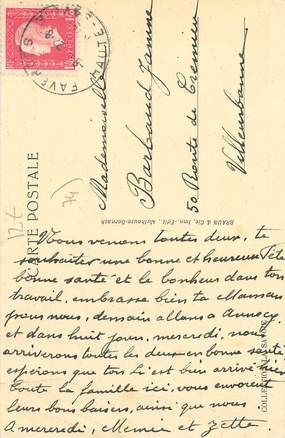 CARTE POSTALE
Mademoiselle
Barbaud Jeanne
50 Route de Crémieu
Villeurbanne
BRAUN & Cie, Imp.-Édit., Mulhouse-Dornach
FAVERGES
12€
74
Nous venons toutes deux, te
souhaiter une bonne et heureuse fête
bonne santé et le bonheur dans ton
travail, embrasse bien ta Maman
pour nous, demain allons a Annecy
et dans huit jours, mercredi, nous
arriverons toutes les deux en bonne santé
espérons que ton là est bien arrivé
Toute la famille ici, vous envoient
leurs bons baisers, ainsi que nous
A mercredi, Mémie et Zette.